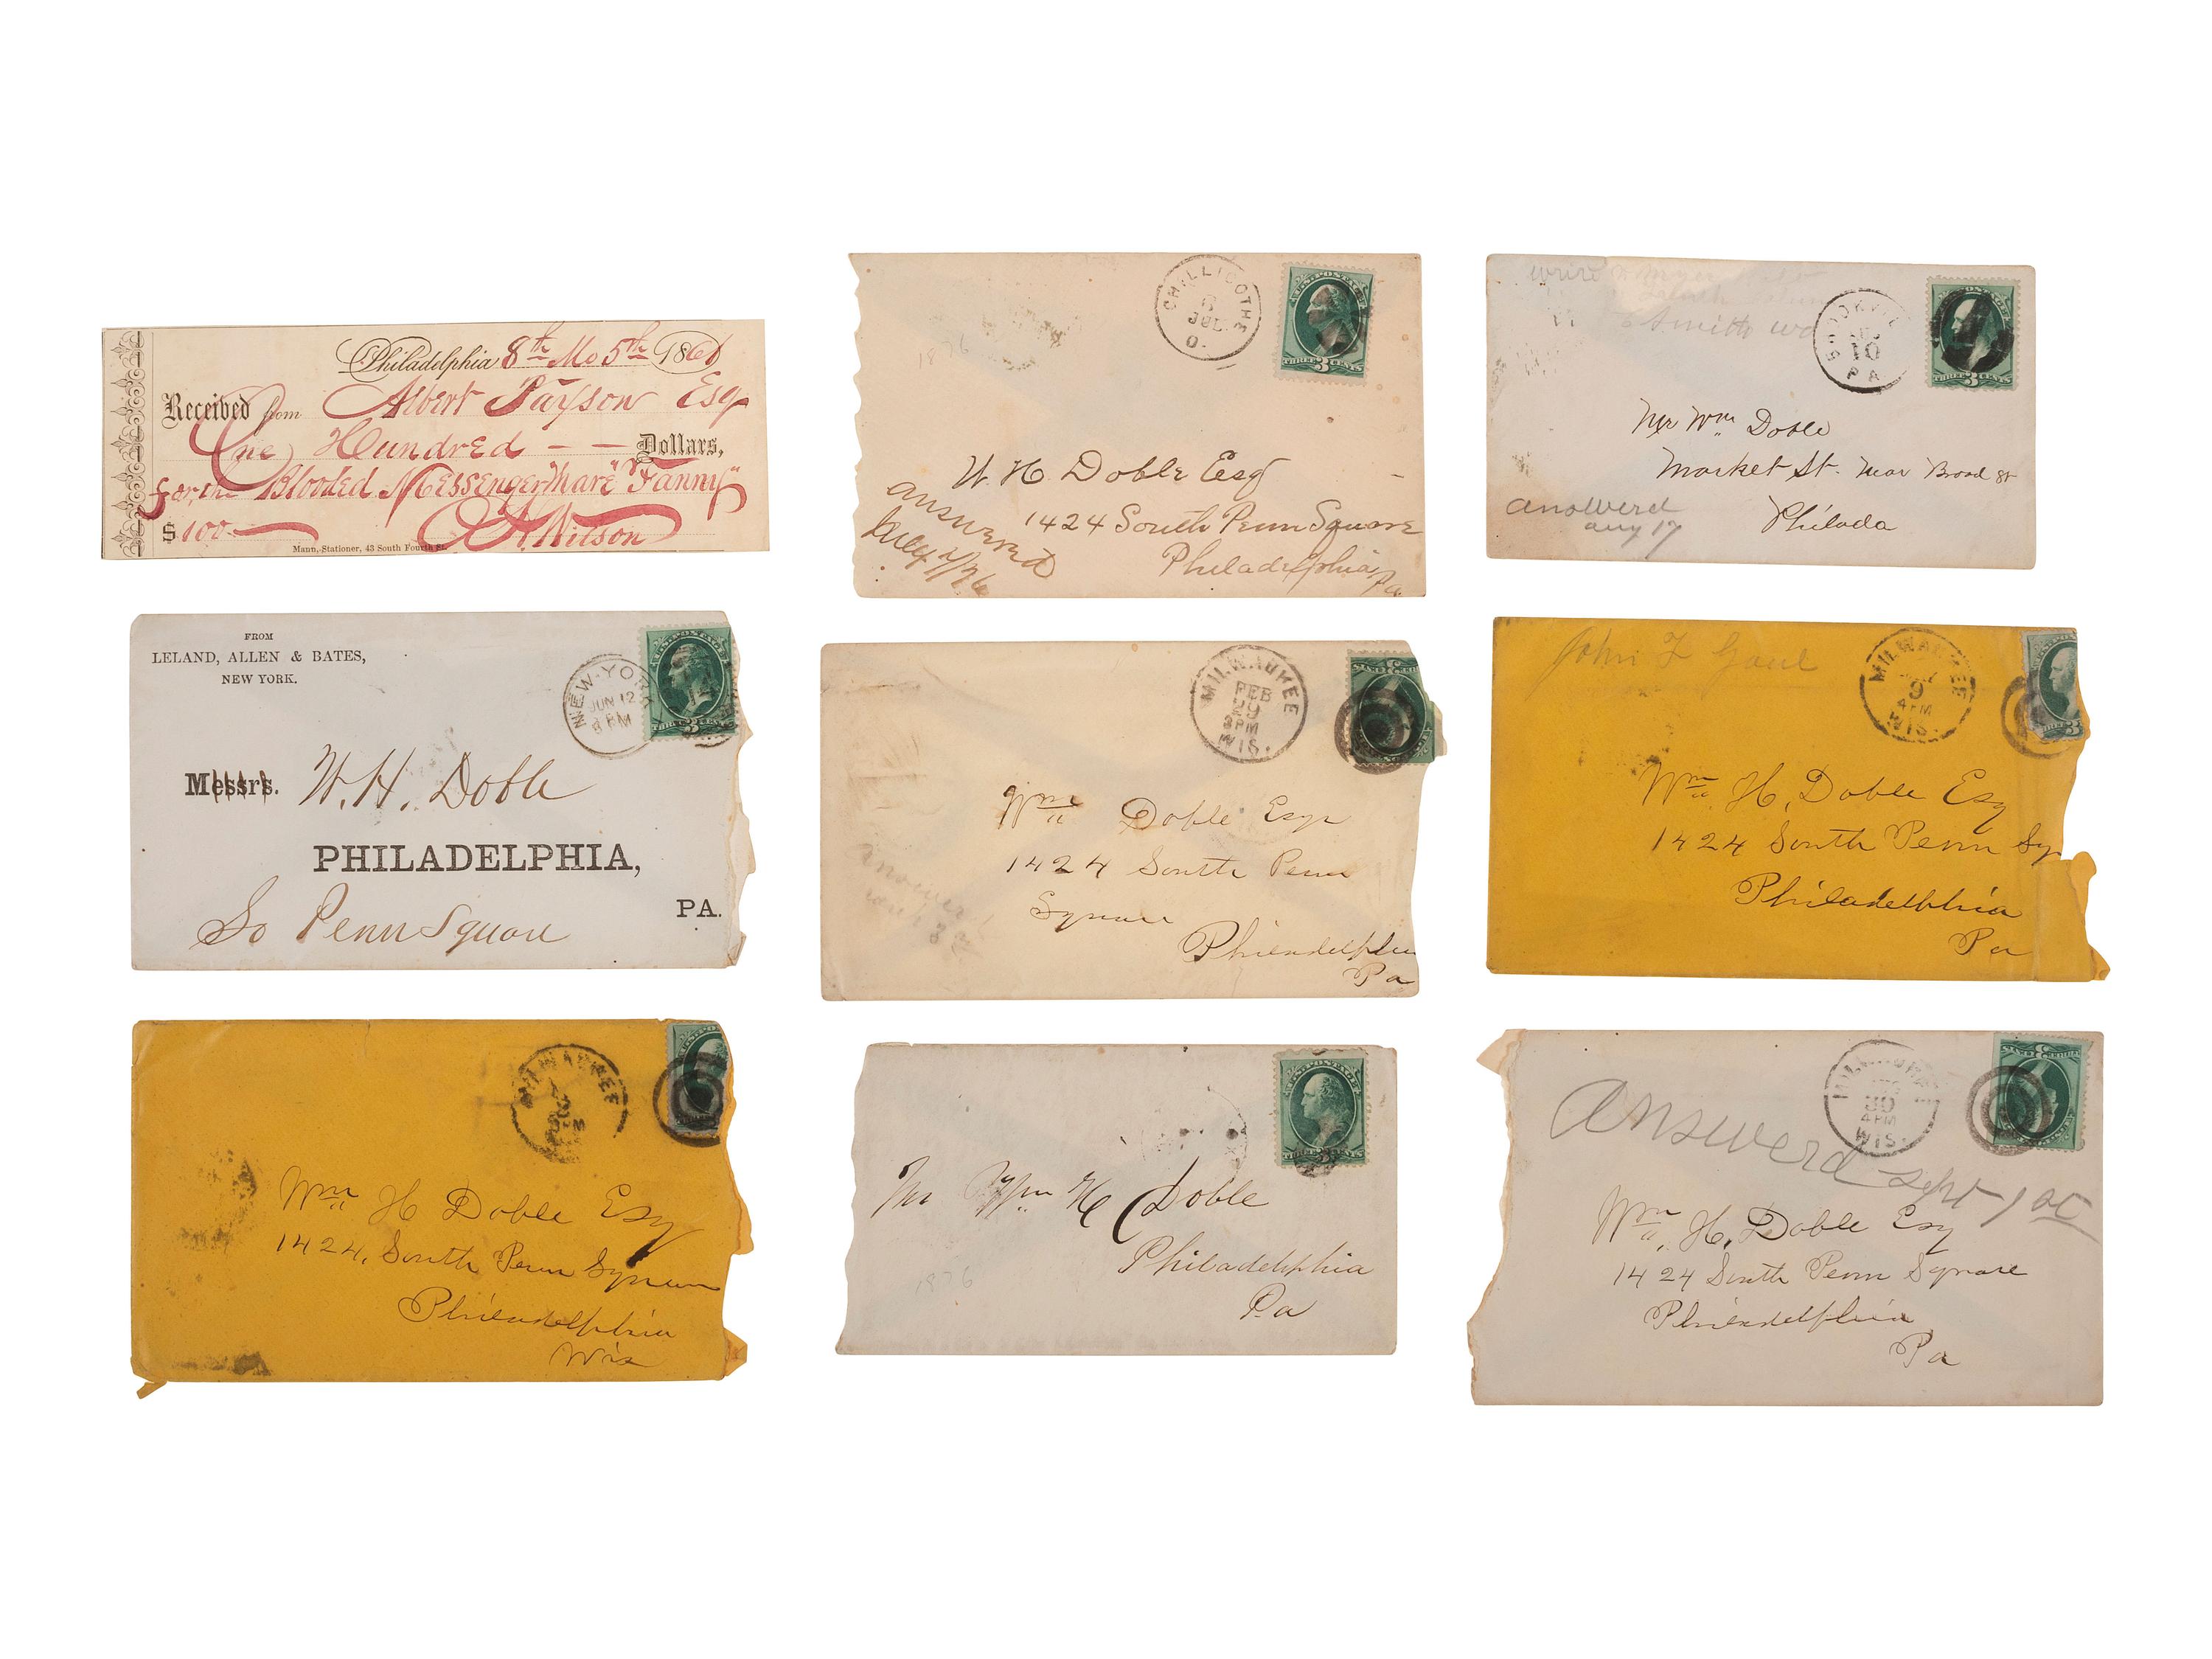 Philadelphia 8th Mo 5th 186
Received from Albert Payson Esq
One Hundred — — Dollars,
for the Blooded Messenger Mare "Fanny"
$ 100— A. Wilson
Mann, Stationer, 43 South Fourth St.
CHILLICOTHE
6
JUL
O.
U.S. POSTAGE
THREE 3 CENTS
1876
W. H. Doble Esq
1424 South Penn Square
Philadelphia Pa
answered
July 7/76
10
PA
THREE 3 CENTS
Mr Wm Doble
Market St. near Broad St
Philada
answerd
aug 17
FROM
LELAND, ALLEN & BATES,
NEW YORK.
NEW-YORK
JUN 12
PM
Messrs. W. H. Doble
PHILADELPHIA,
PA.
So Penn Square
MILWAUKEE
FEB
29
3 PM
WIS.
Wm Doble Esqr
1424 South Penn
Square
Philadelphia
Pa
John F Gaul
MILWAUKEE
9
4 PM
WIS.
Wm H. Doble Esq
1424 South Penn Sq
Philadelphia
Pa
MILWAUKEE
Wm H Doble Esq
1424, South Penn Square
Philadelphia
Wis
U.S. POSTAGE
THREE 3 CENTS
Mr Wm H Doble
Philadelphia
Pa
1876
MILWAUKEE
30
4 PM
WIS.
Answerd Sept 1st
Wm. H. Doble Esq
1424 South Penn Square
Philadelphia
Pa